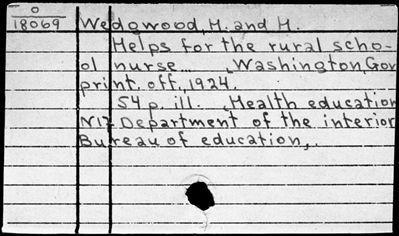 O
18069 Wedgwood, H. and H.
Helps for the rural scho-
ol nurse... Washington, Gov
print. off., 1924.
54 p. ill. Health education
N17 Department of the interior
Bureau of education,.